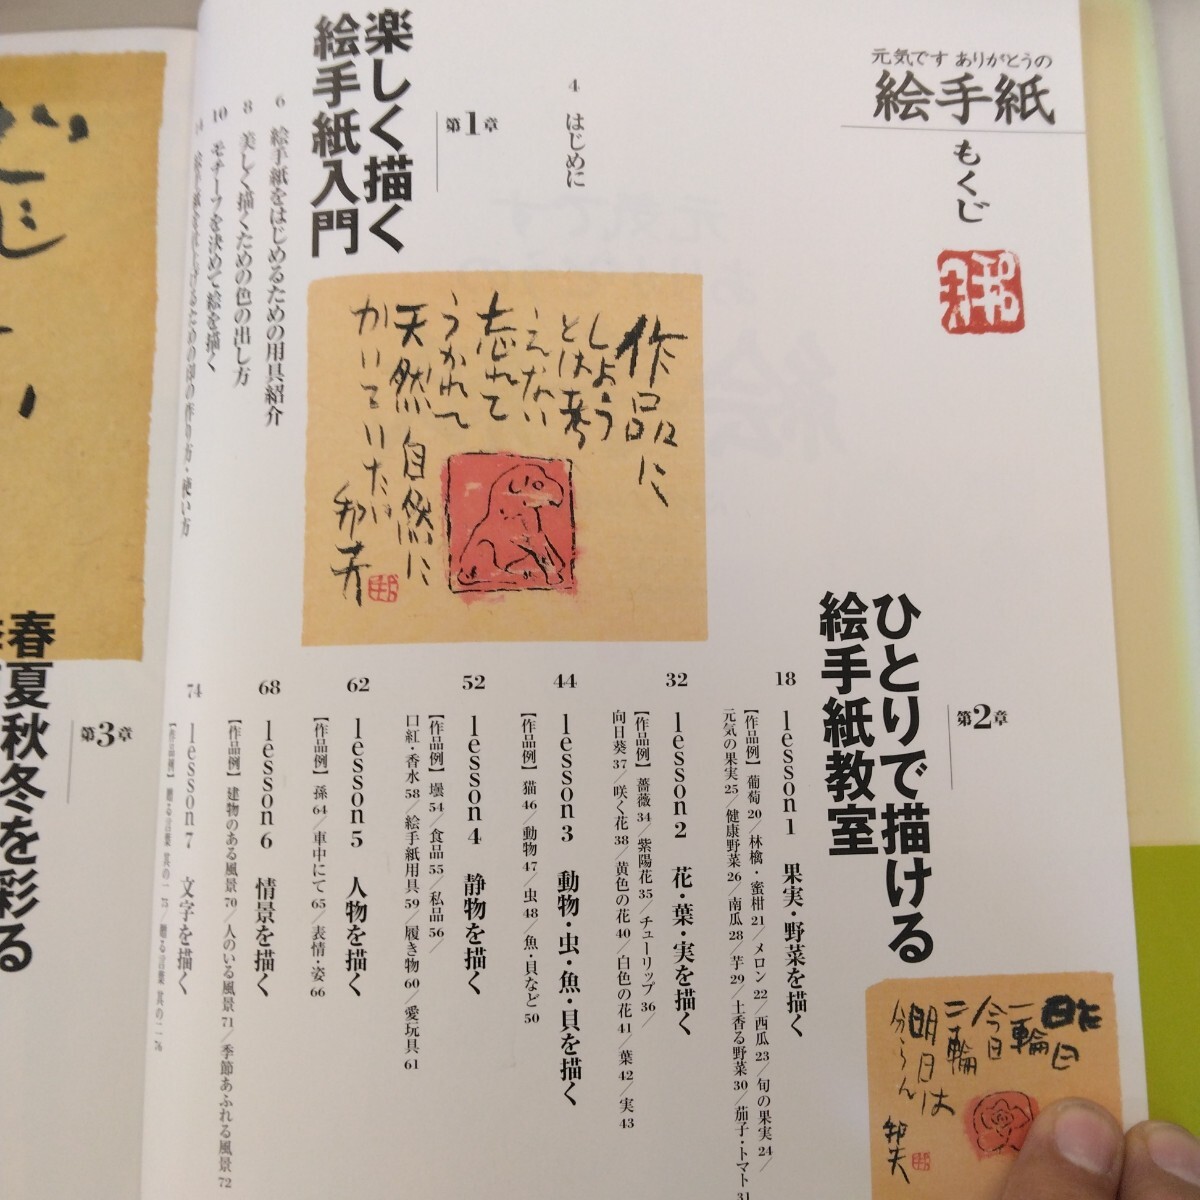 元気です ありがとうの
絵手紙
もくじ
4 はじめに
第1章
楽しく描く
絵手紙入門
6 絵手紙をはじめるための用具紹介
8 美しく描くための色の出し方
10 モチーフを決めて絵を描く
作品に
しよう
とは考
えない
忘れて
うかれて
天然 自然に
かいていたい
第2章
ひとりで描ける
絵手紙教室
18 lesson1 果実・野菜を描く
【作品例】葡萄20／林檎・蜜柑21／メロン22／西瓜23／旬の果実24／
元気の果実25／健康野菜26／南瓜28／芋29／土香る野菜30／茄子・トマト31
32 lesson2 花・葉・実を描く
【作品例】薔薇34／紫陽花35／チューリップ36／
向日葵37／咲く花38／黄色の花40／白色の花41／葉42／実43
44 lesson3 動物・虫・魚・貝を描く
【作品例】猫46／動物47／虫48／魚・貝など50
52 lesson4 静物を描く
【作品例】壜54／食品55／私品56／
口紅・香水58／絵手紙用具59／履き物60／愛玩具61
62 lesson5 人物を描く
【作品例】孫64／車中にて65／表情・姿66
68 lesson6 情景を描く
【作品例】建物のある風景70／人のいる風景71／季節あふれる風景72
74 lesson7 文字を描く
【作品例】贈る言葉 其の一75／贈る言葉 其の二76
昨日
一輪
今日
二輪
明日は
分らん
第3章
春夏秋冬を彩る